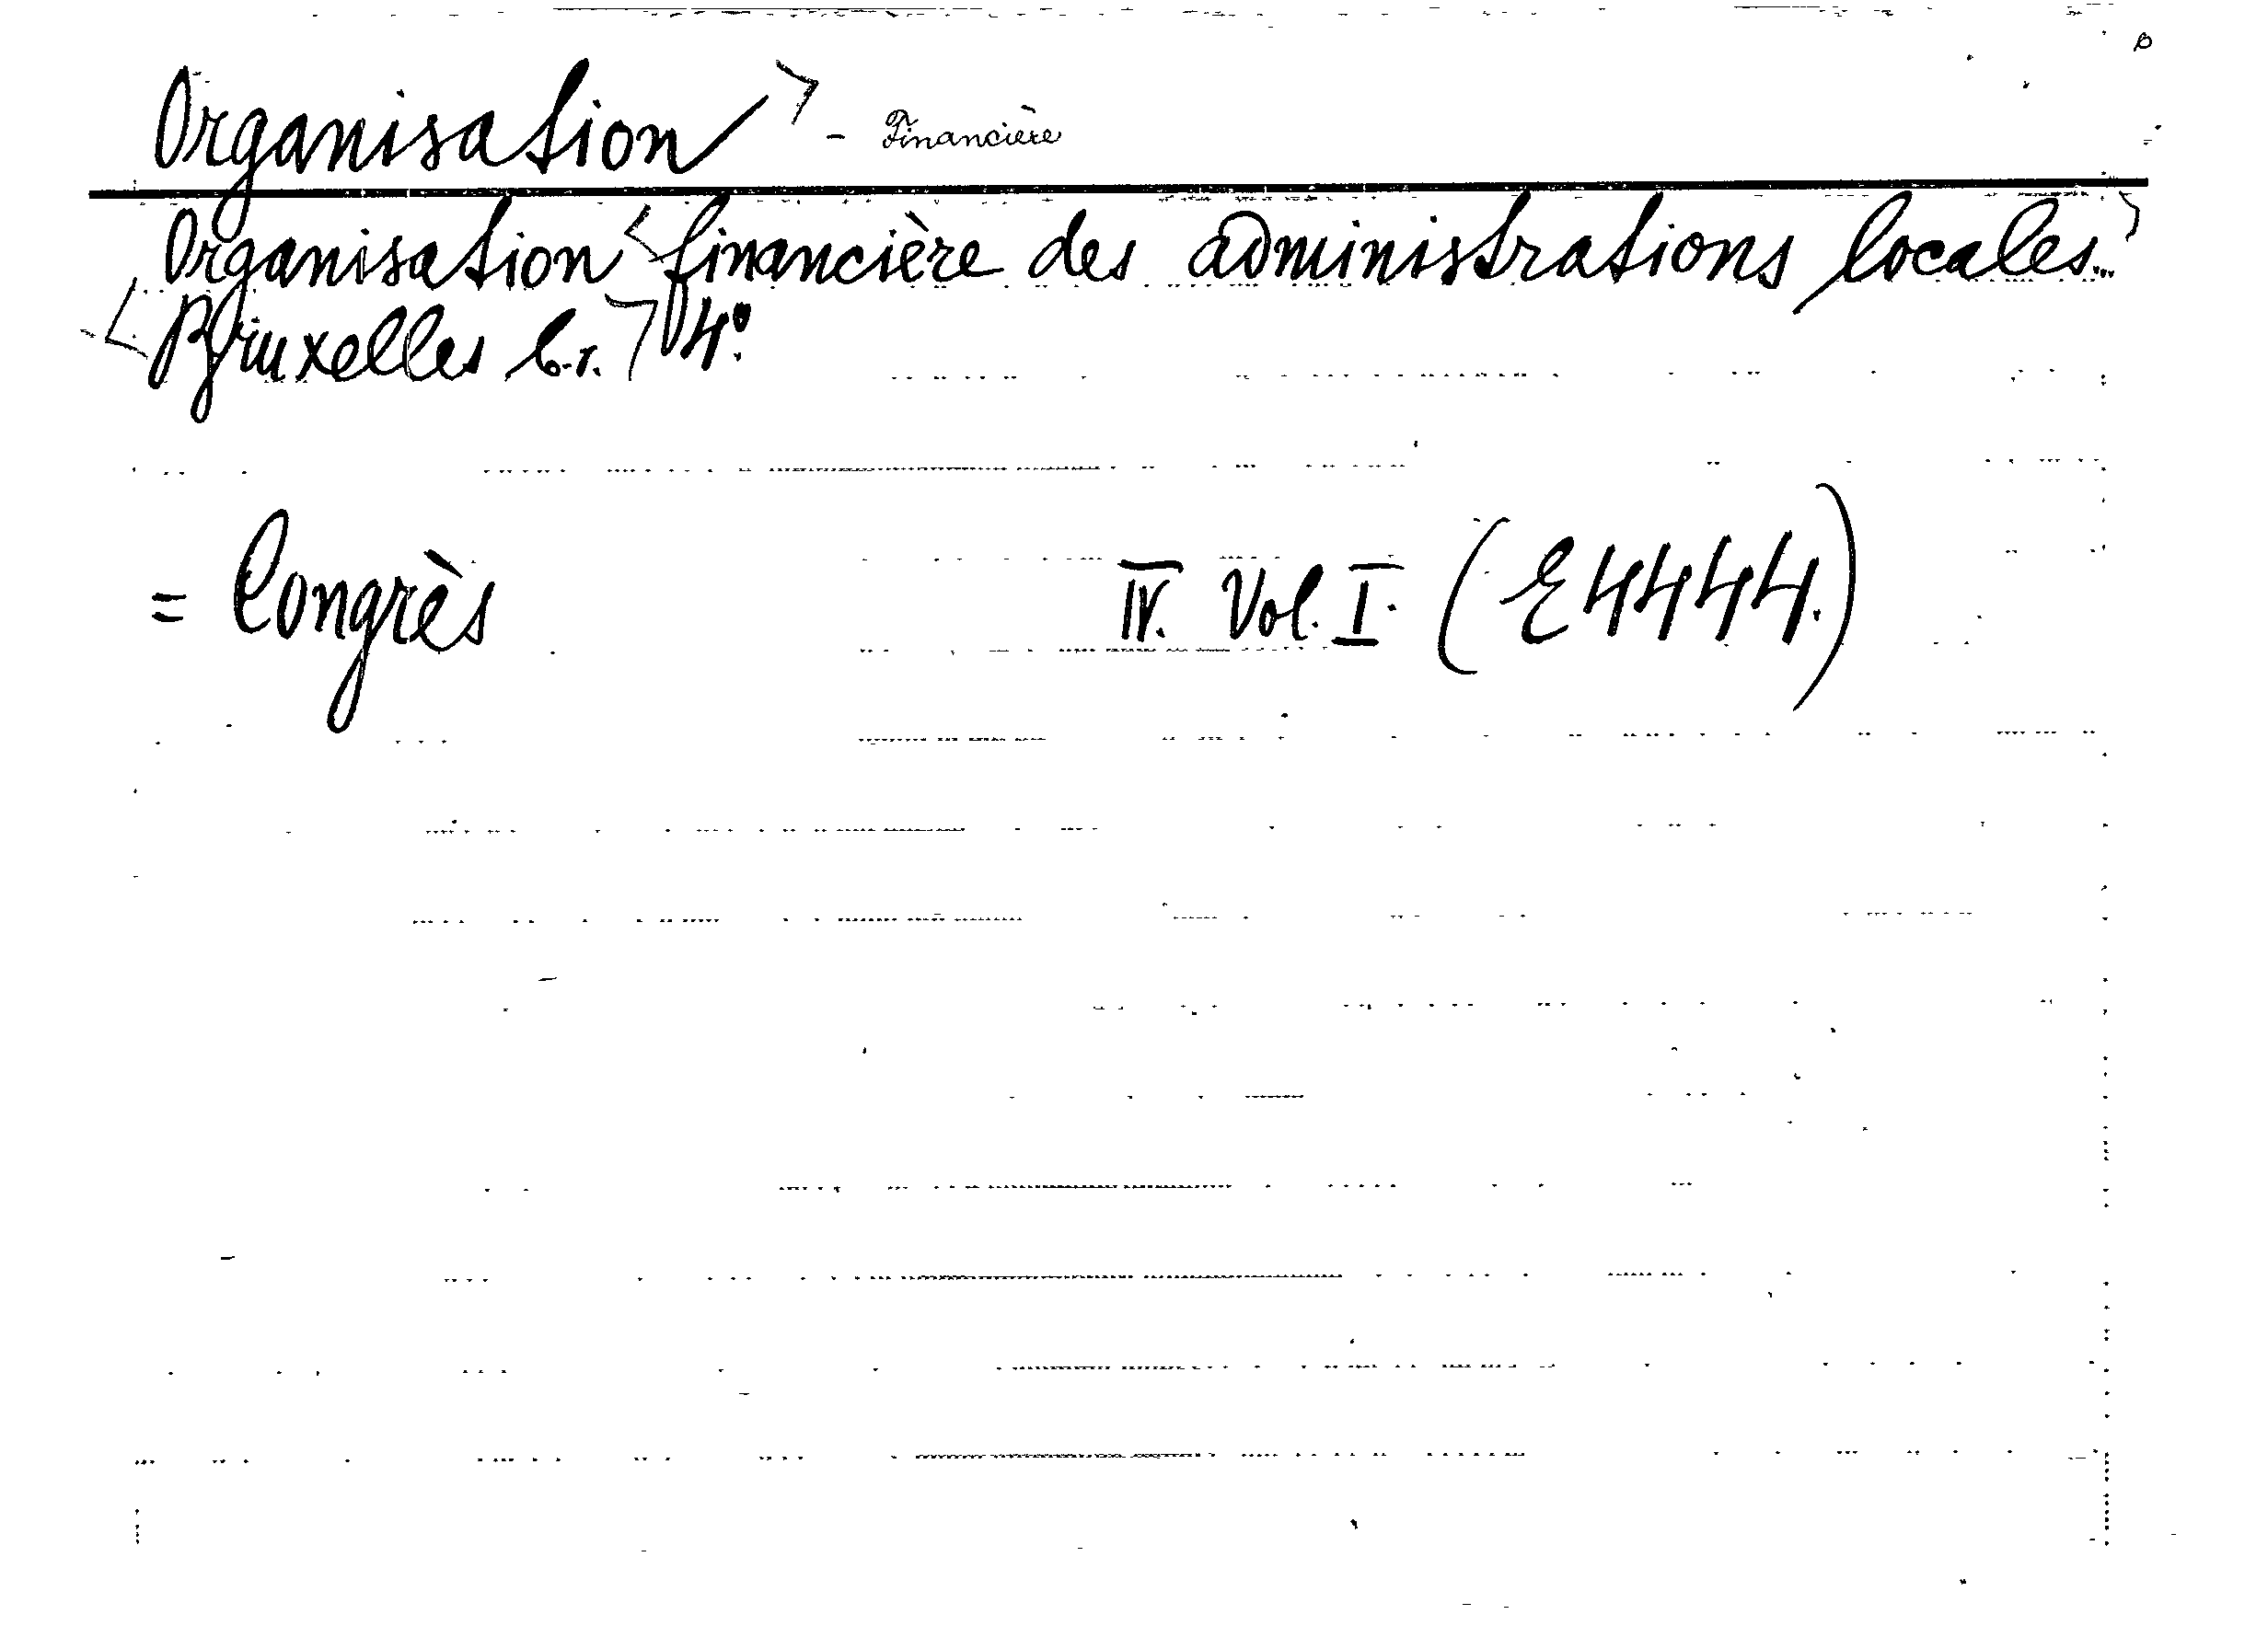 Organisation - Financière
Organisation financière des administrations locales...
Bruxelles 4º.
= Congrès IV. Vol. I. (E4444.)